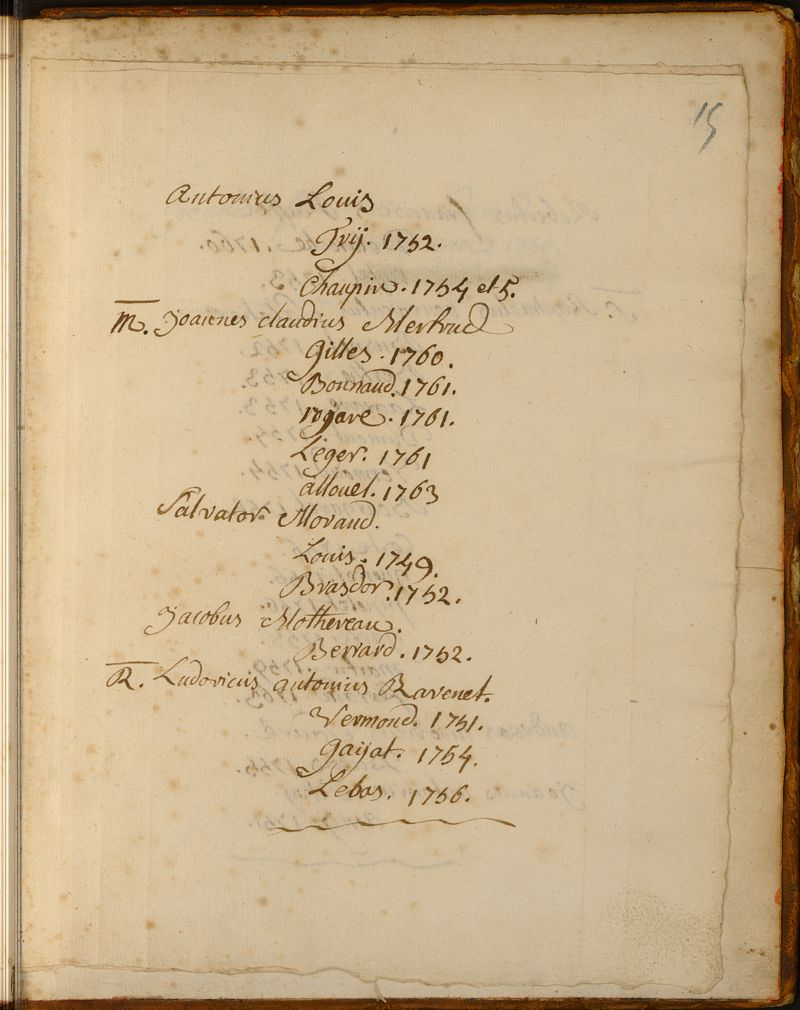 15
Antonius Louis
Frij. 1752.
Chaupin. 1754 et 5.
M. Joannes claudius Mertrud
Gilles. 1760.
Bonnaud. 1761.
1761.
Leger. 1761
allouel. 1763
Salvator Morand.
Louis. 1749.
Brasdor. 1752.
Jacobus Mothereau.
Berrard. 1752.
R. Ludovicus antonius Ravenet.
Vermond. 1751.
Gayat. 1754.
Lebas. 1756.